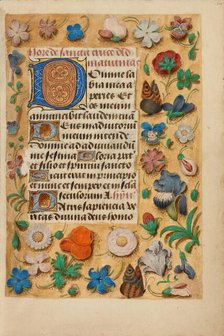 Hore de sancta cruce Ad
matutinas
Domine la
bia mea a
peries Et os meum
annunciabit laudem tuam
Deus in adiutorium
meum intende
Domine ad adiuuandū
me festina Gloria pat
ri et filio et spiritui sancto
Sicut erat in principio
et nunc et semper et in
seculorum
Patris sapiencia ve
ritas diuina deus homo